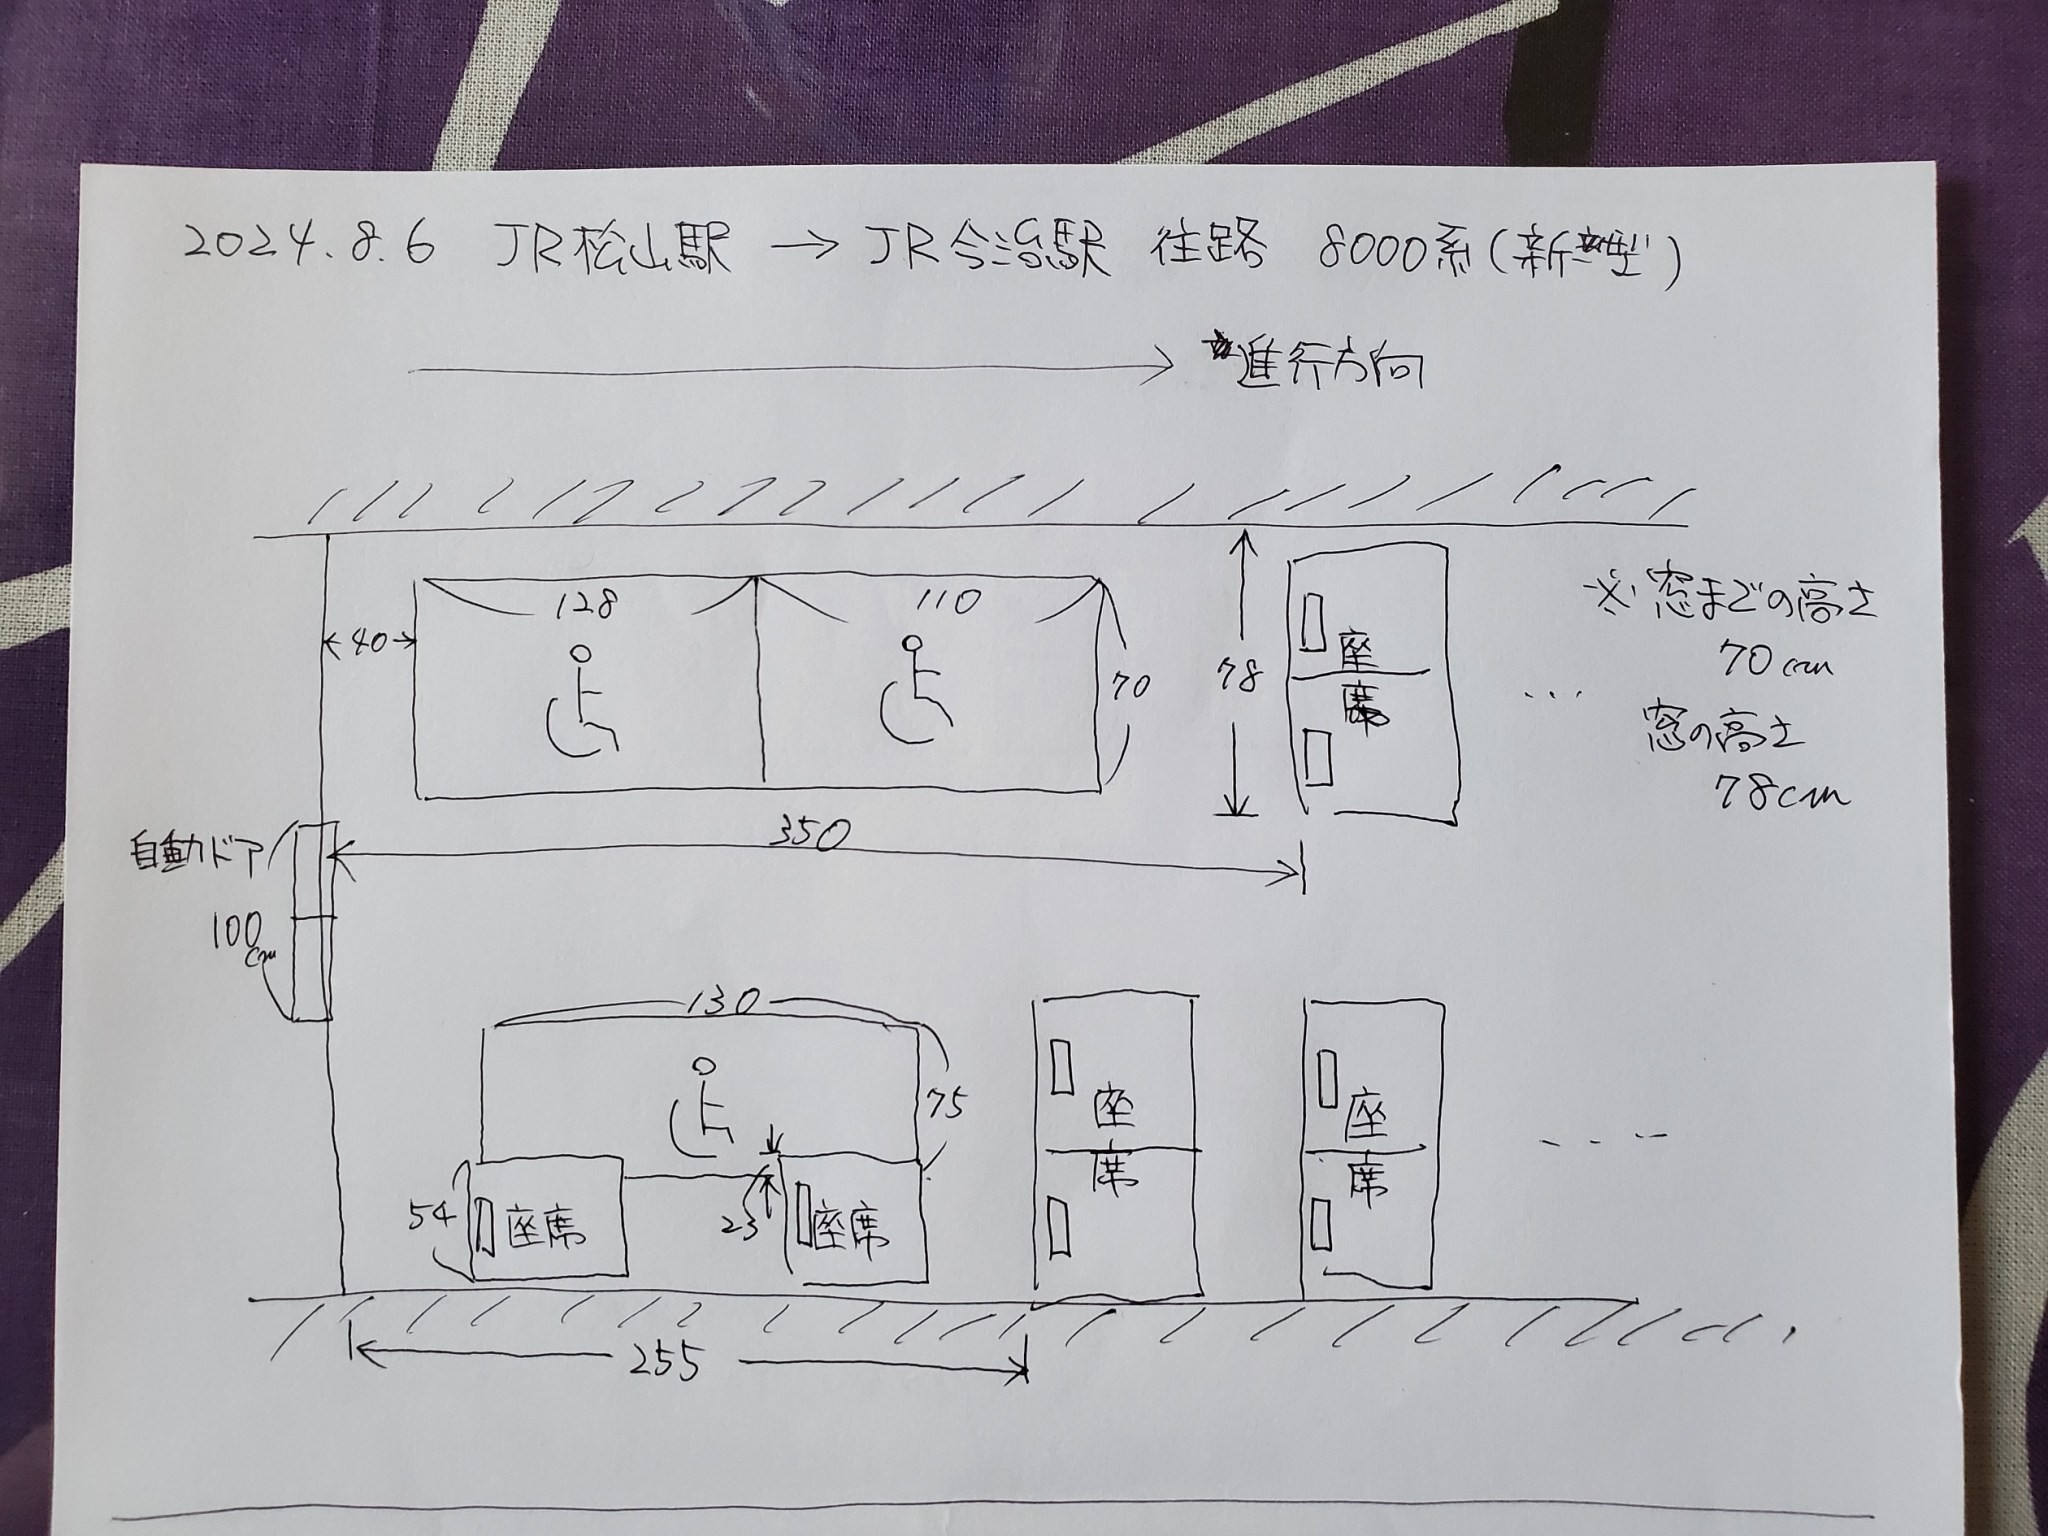 2024.8.6 JR松山駅 → JR今治駅 往路 8000系(新型)
→ 進行方向
128
110
40
70
78
※窓までの高さ
70cm
窓の高さ
78cm
座席
350
自動ドア
100cm
130
75
座席
座席
54
座席
23
座席
255